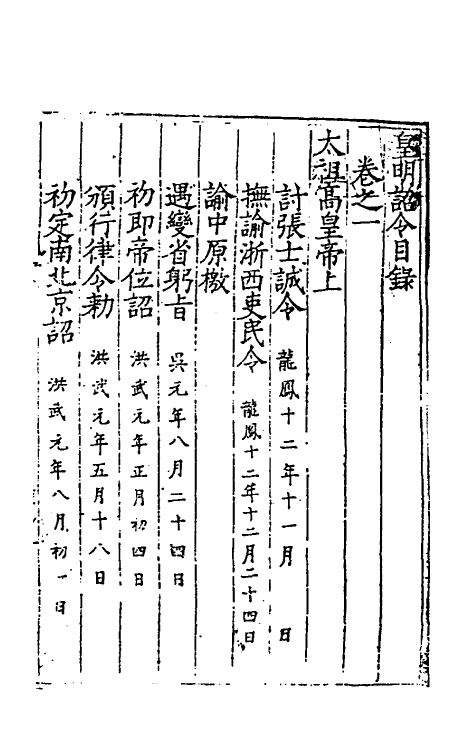 皇明詔令目錄
卷之一
太祖高皇帝上
討張士誠令 龍鳳十二年十一月 日
撫諭浙西吏民令 龍鳳十二年十二月二十四日
諭中原檄
遇變省躬旨 吳元年八月二十四日
初即帝位詔 洪武元年正月初四日
頒行律令勅 洪武元年五月十八日
初定南北京詔 洪武元年八月初一日